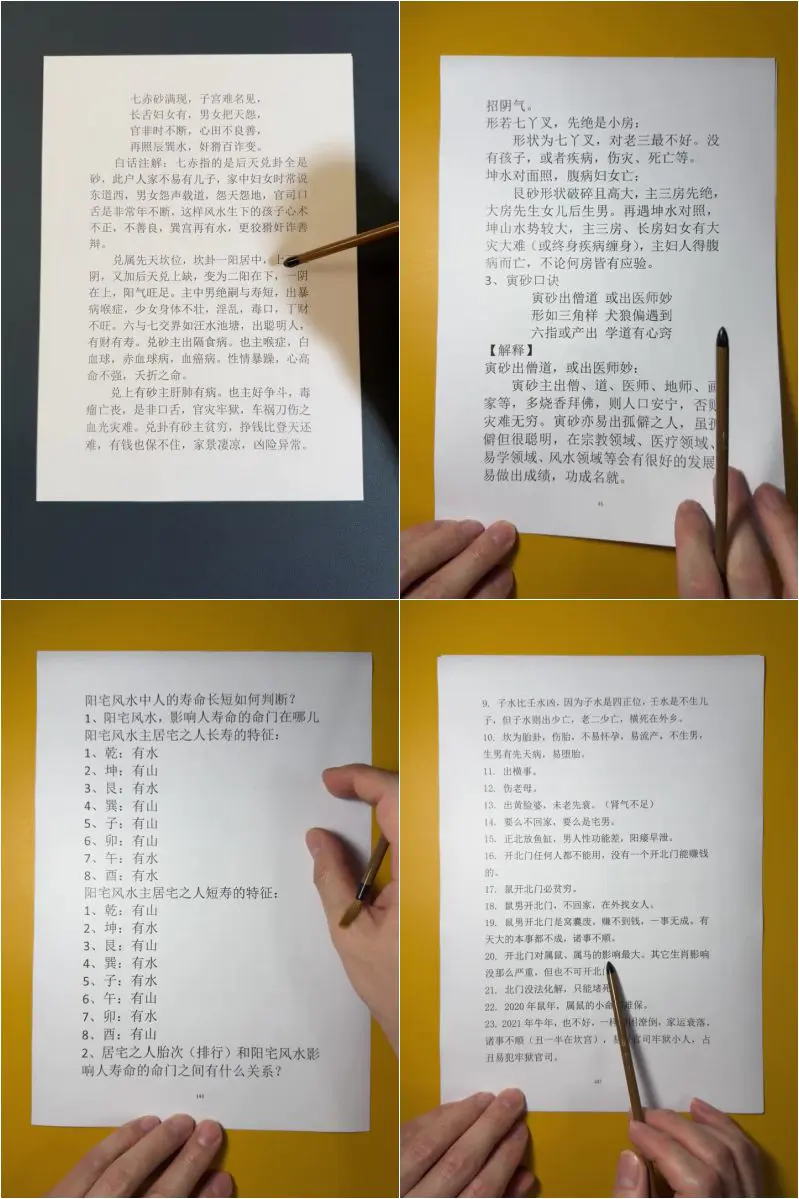 七赤砂满现，子宫难名见，
长舌妇女有，男女把天怨，
官非时不断，心田不良善，
再照辰巽水，奸猾百诈变。
白话注解：七赤指的是后天兑卦全是
砂，此户人家不易有儿子，家中妇女时常说
东道西，男女怨声载道，怨天怨地，官司口
舌是非常年不断，这样风水生下的孩子心术
不正，不善良，巽宫再有水，更狡猾奸诈善
辩。
兑属先天坎位，坎卦一阳居中，上
阴，又加后天兑上缺，变为二阳在下，一阴
在上，阳气旺足。主中男绝嗣与寿短，出暴
病喉症，少女身体不壮，淫乱，毒口，丁财
不旺。六与七交界如汪水池塘，出聪明人，
有财有寿。兑砂主出隔食病。也主喉症，白
血球，赤血球病，血癌病。性情暴躁，心高
命不强，夭折之命。
兑上有砂主肝肺有病。也主好争斗，毒
瘤亡丧，是非口舌，官灾牢狱，车祸刀伤之
血光灾难。兑卦有砂主贫穷，挣钱比登天还
难，有钱也保不住，家景凄凉，凶险异常。
招阴气。
形若七丫叉，先绝是小房；
形状为七丫叉，对老三最不好。没
有孩子，或者疾病，伤灾、死亡等。
坤水对面照，腹病妇女亡；
艮砂形状破碎且高大，主三房先绝，
大房先生女儿后生男。再遇坤水对照，
坤山水势较大，主三房、长房妇女有大
灾大难（或终身疾病缠身），主妇人得腹
病而亡，不论何房皆有应验。
3、寅砂口诀
寅砂出僧道 或出医师妙
形如三角样 犬狼偏遇到
六指或产出 学道有心窍
【解释】
寅砂出僧道，或出医师妙：
寅砂主出僧、道、医师、地师、画
家等，多烧香拜佛，则人口安宁，否则
灾难无穷。寅砂亦易出孤僻之人，虽孤
僻但很聪明，在宗教领域、医疗领域、
易学领域、风水领域等会有很好的发展
易做出成绩，功成名就。
阳宅风水中人的寿命长短如何判断？
1、阳宅风水，影响人寿命的命门在哪儿
阳宅风水主居宅之人长寿的特征：
1、乾：有水
2、坤：有山
3、艮：有水
4、巽：有山
5、子：有山
6、卯：有山
7、午：有水
8、酉：有水
阳宅风水主居宅之人短寿的特征：
1、乾：有山
2、坤：有水
3、艮：有山
4、巽：有水
5、子：有水
6、午：有山
7、卯：有水
8、酉：有山
2、居宅之人胎次（排行）和阳宅风水影
响人寿命的命门之间有什么关系？
9. 子水比壬水凶，因为子水是四正位，壬水是不生儿
子，但子水则出少亡，老二少亡，横死在外乡。
10. 坎为胎卦，伤胎，不易怀孕，易流产，不生男，
生男有先天病，易堕胎。
11. 出横事。
12. 伤老母。
13. 出黄脸婆，未老先衰。（肾气不足）
14. 要么不回家，要么是宅男。
15. 正北放鱼缸，男人性功能差，阳痿早泄。
16. 开北门任何人都不能用，没有一个开北门能赚钱
的。
17. 鼠开北门必贫穷。
18. 鼠男开北门，不回家，在外找女人。
19. 鼠男开北门是窝囊废，赚不到钱，一事无成，有
天大的本事都不成，诸事不顺。
20. 开北门对属鼠、属马的影响最大。其它生肖影响
没那么严重，但也不可开北
21. 北门没法化解，只能堵死
22. 2020年鼠年，属鼠的小命难保。
23. 2021年牛年，也不好，一样潦倒，家运衰落，
诸事不顺（丑一半在坎宫），易官司牢狱小人，占
丑易犯牢狱官司。